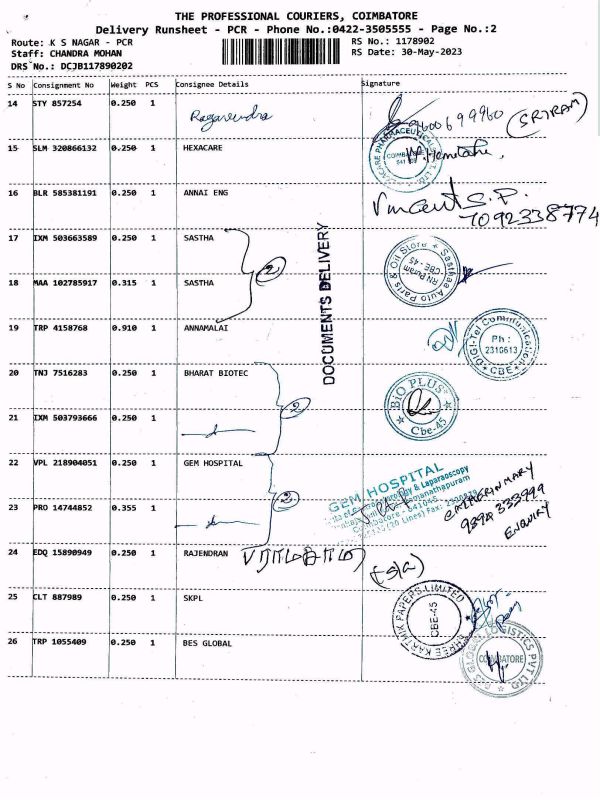 THE PROFESSIONAL COURIERS, COIMBATORE
Delivery Runsheet - PCR - Phone No.:0422-3505555 - Page No.:2
Route: K S NAGAR - PCR RS No.: 1178902
Staff: CHANDRA MOHAN RS Date: 30-May-2023
DRS No.: DCJB117890202
S No Consignment No Weight PCS Consignee Details Signature
14 STY 857254 0.250 1
9600699960 (SRIRAM)
15 SLM 320866132 0.250 1 HEXACARE
16 BLR 585381191 0.250 1 ANNAI ENG
Vincent S.P.
7092338774
17 IXM 503663589 0.250 1 SASTHA
2
18 MAA 102785917 0.315 1 SASTHA
RN Puram
CBE - 45
Sasthaa Auto Parts & Oil Store
DOCUMENTS DELIVERY
19 TRP 4158768 0.910 1 ANNAMALAI
DIGI-Tel Communication
Ph :
2310613
CBE
20 TNJ 7516283 0.250 1 BHARAT BIOTEC
BIO PLUS
Cbe-45
2
21 IXM 503793666 0.250 1
22 VPL 218904051 0.250 1 GEM HOSPITAL
GEM HOSPITAL
2
23 PRO 14744852 0.355 1
CATHERIN MARY
9894 333999
ENQUIRY
24 EDQ 15890949 0.250 1 RAJENDRAN
(S/a)
25 CLT 887989 0.250 1 SKPL
KARTHIK PAPERS LIMITED
CBE-45
26 TRP 1055409 0.250 1 BES GLOBAL
LOGISTICS PVT LTD
COIMBATORE